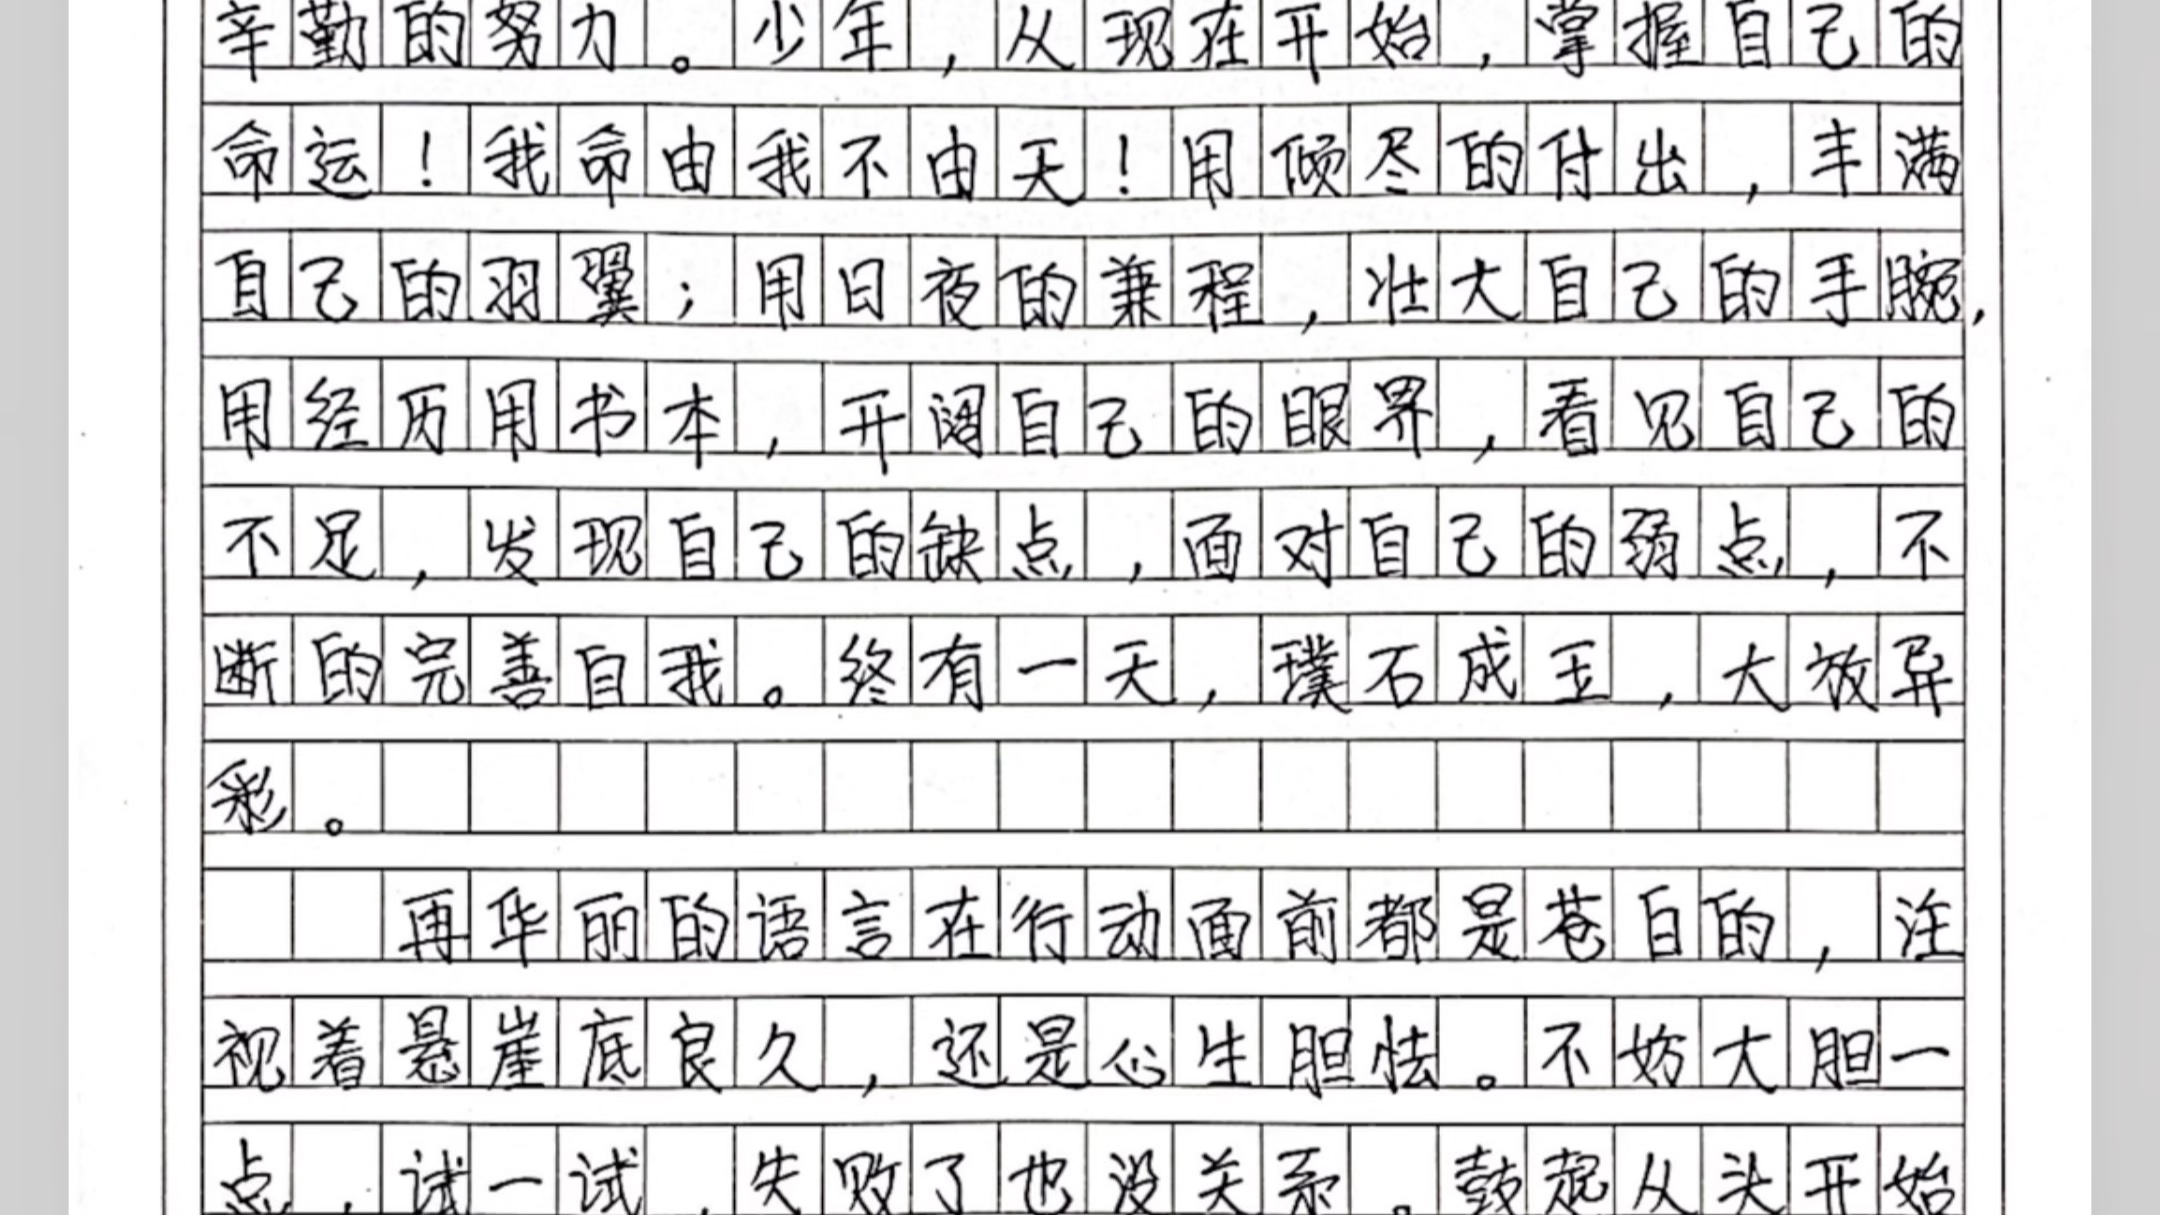 辛勤的努力。少年，从现在开始，掌握自己的
命运！我命由我不由天！用倾尽的付出，丰满
自己的羽翼；用日夜的兼程，壮大自己的手腕，
用经历用书本，开阔自己的眼界，看见自己的
不足，发现自己的缺点，面对自己的弱点，不
断的完善自我。终有一天，璞石成玉，大放异
彩。
再华丽的语言在行动面前都是苍白的，注
视着悬崖底良久，还是心生胆怯。不妨大胆一
点，试一试，失败了也没关系。鼓起从头开始